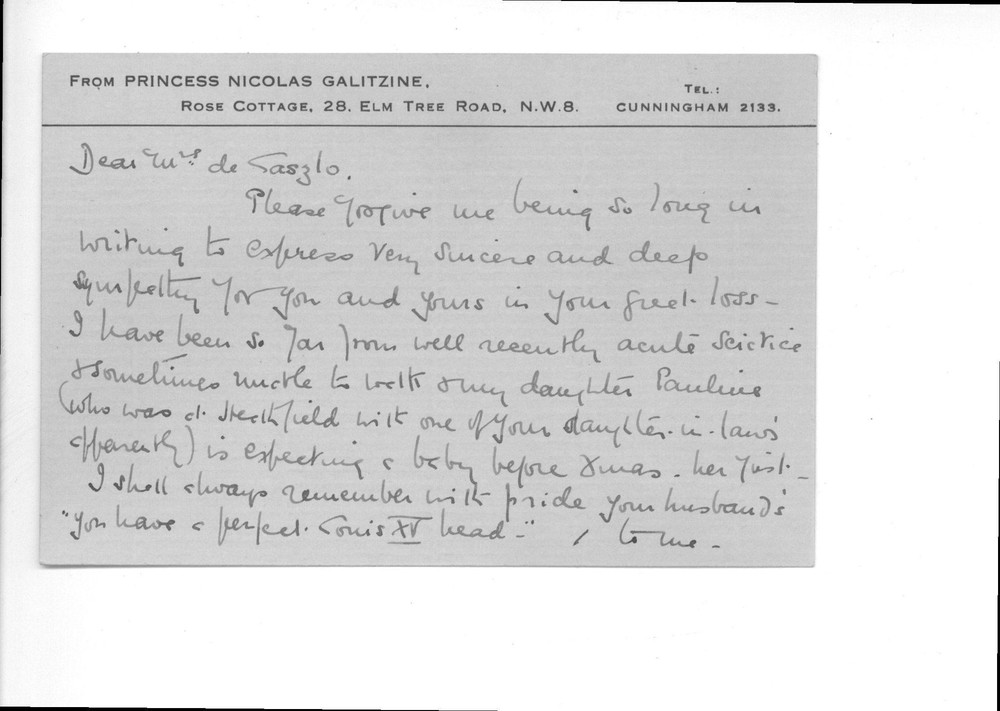 FROM PRINCESS NICOLAS GALITZINE,
ROSE COTTAGE, 28, ELM TREE ROAD, N.W.8.
TEL.:
CUNNINGHAM 2133.
Dear Mrs de Laszlo.
Please forgive me being so long in
writing to express very sincere and deep
sympathy for you and yours in your great loss –
I have been so far from well recently acute sciatica
& sometimes unable to walk & my daughter Pauline
(who was at Heathfield with one of your daughter-in-laws
apparently) is expecting a baby before Xmas – her first –
I shall always remember with pride your husband's
"you have a perfect Louis XV head –" / to me –